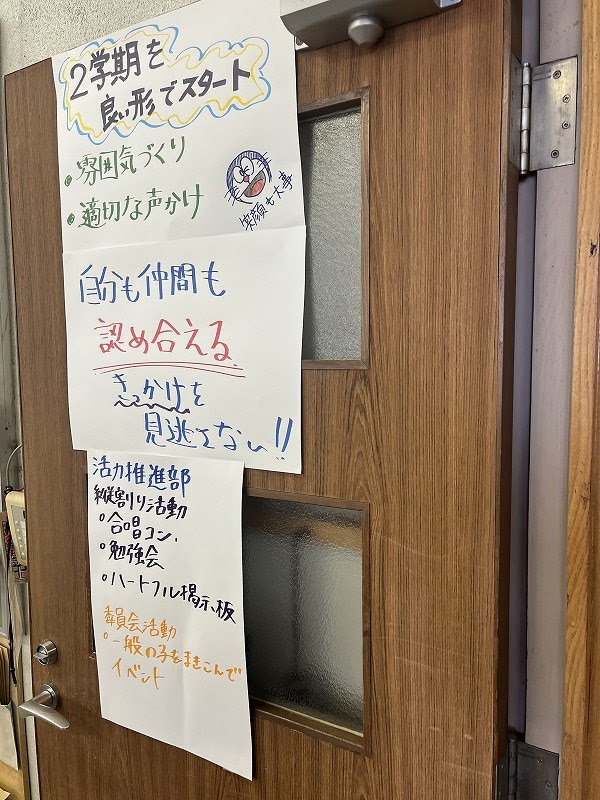 2学期を
良い形でスタート
・雰囲気づくり
・適切な声かけ
笑顔も大事
自分も仲間も
認め合える
きっかけを
見逃さない!!
活力推進部
縦割り活動
・合唱コン.
・勉強会
・ハートフル掲示板
委員会活動
・一般の子をまきこんで
イベント